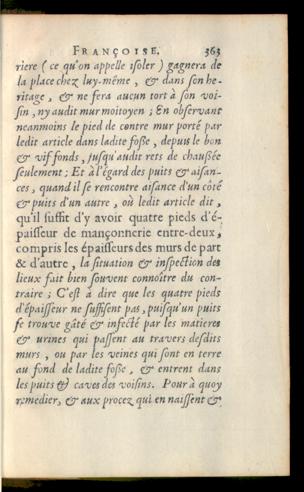 FRANÇOISE. 363
riere ( ce qu'on appelle isoler ) gagnera de
la place chez luy-même , & dans son he-
ritage , & ne fera aucun tort à son voi-
sin , ny audit mur moitoyen ; En observant
neanmoins le pied de contre mur porté par
ledit article dans ladite fosse , depuis le bon
& vif fonds , jusqu'audit rets de chaussée
seulement ; Et à l'égard des puits & aisan-
ces , quand il se rencontre aisance d'un côté
& puits d'un autre , où ledit article dit ,
qu'il suffit d'y avoir quatre pieds d'é-
paisseur de mançonnerie entre-deux ,
compris les épaisseurs des murs de part
& d'autre , la situation & inspection des
lieux fait bien souvent connoître du con-
traire ; C'est à dire que les quatre pieds
d'épaisseur ne suffisent pas , puisqu'un puits
se trouve gâté & infecté par les matieres
& urines qui passent au travers desdits
murs , ou par les veines qui sont en terre
au fond de ladite fosse , & entrent dans
les puits & caves des voisins. Pour à quoy
remedier , & aux procez qui en naissent &